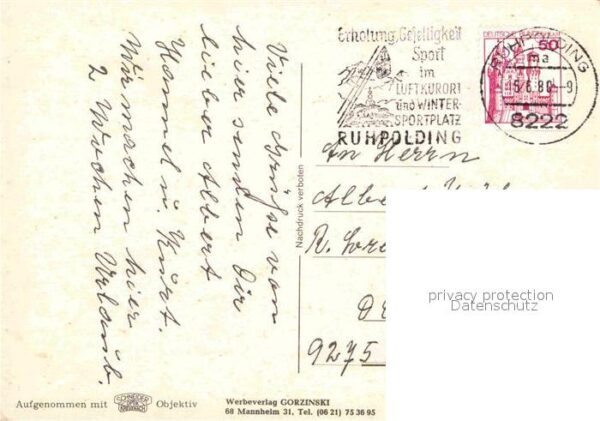 Erholung, Geselligkeit
Sport
im
LUFTKURORT
und WINTER-
SPORTPLATZ
RUHPOLDING
DEUTSCHE BUNDESPOST
50
RUHPOLDING
ma
15.6.80-9
8222
Viele Grüße von
hier senden Dir
lieber Albert
Hannel u. Kurt.
Wir machen hier
2 Wochen Urlaub.
Nachdruck verboten
An Herrn
Albert
R.
9275
privacy protection
Datenschutz
Aufgenommen mit SCHNEIDER KREUZNACH Objektiv
Werbeverlag GORZINSKI
68 Mannheim 31, Tel. (06 21) 75 36 95